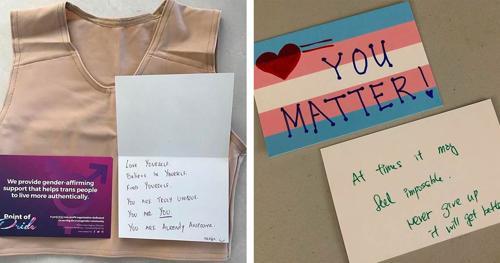 We provide gender-affirming
support that helps trans people
to live more authentically.
Point of
Pride
Love Yourself.
Believe in Yourself.
Find Yourself.
You are Truly Unique.
You are YOU.
You are Already Awesome.
YOU
MATTER!
At times it may
feel impossible.
Never give up
it will get better